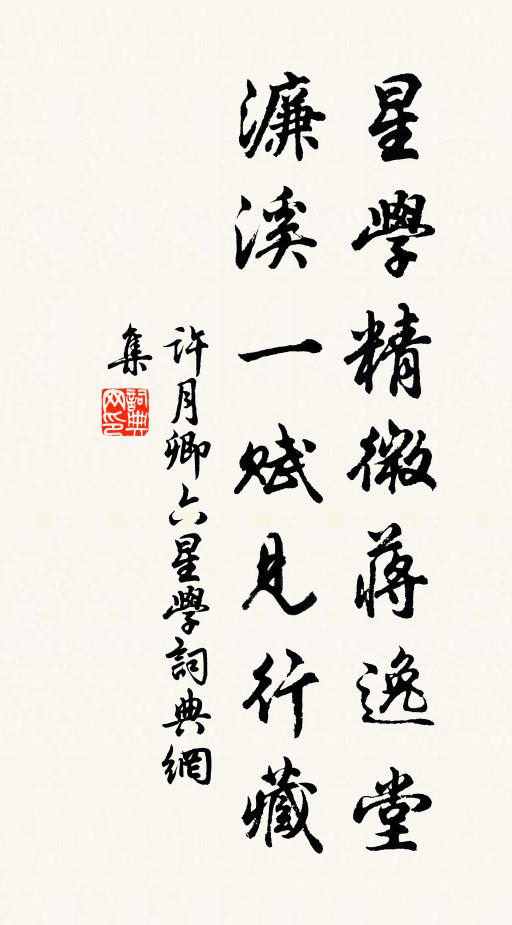 星學精微蔣逸堂
濂溪一賦見行藏
許月卿六星學詞典網
集
詞典网印